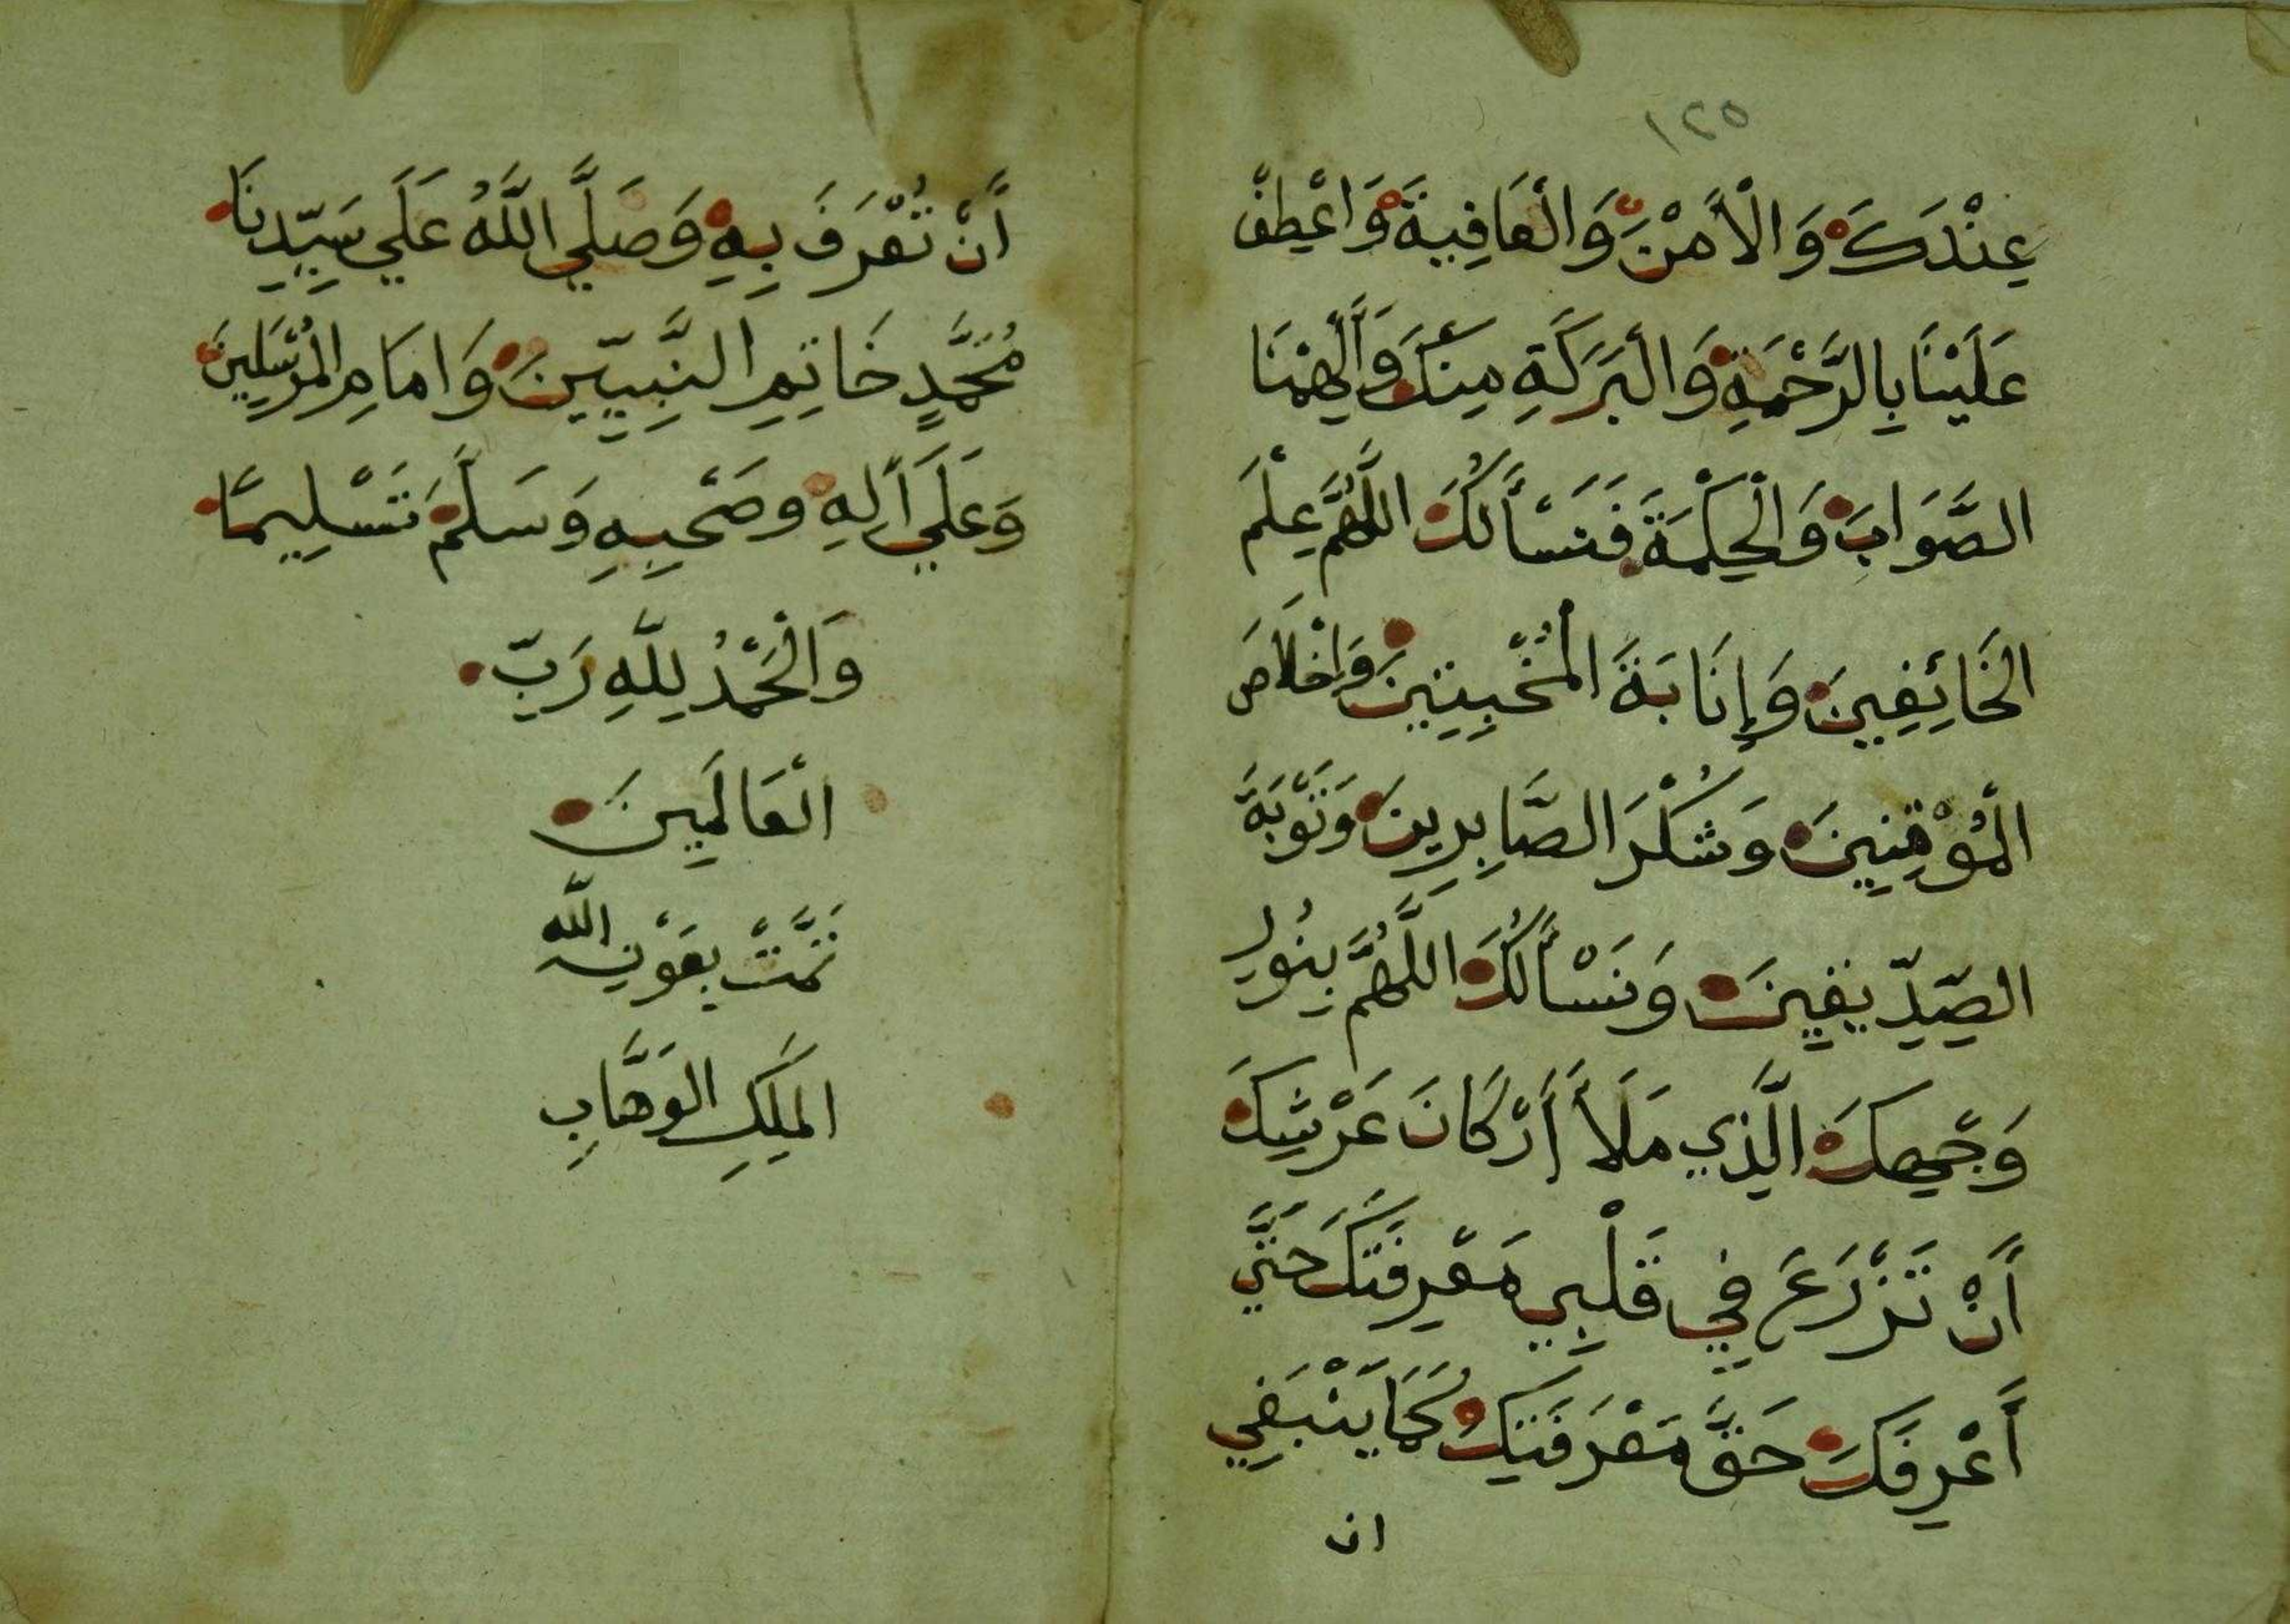 ١٢٥
عِنْدَكَ وَالْأَمْنَ وَالْعَافِيَةَ وَاعْطِفْ
عَلَيْنَا بِالرَّحْمَةِ وَالْبَرَكَةِ مِنْكَ وَأَلْهِمْنَا
الصَّوَابَ وَالْحِكْمَةَ فَنَسْأَلُكَ اللَّهُمَّ عِلْمَ
الخَائِفِينَ وَإِنَابَةَ الْمُخْبِتِينَ وَإِخْلَاصَ
الْمُوْقِنِينَ وَشُكْرَ الصَّابِرِينَ وَتَوْبَةَ
الصِّدِّيقِينَ وَنَسْأَلُكَ اللَّهُمَّ بِنُورِ
وَجْهِكَ الَّذِي مَلَأَ أَرْكَانَ عَرْشِكَ
أَنْ تَزْرَعَ فِي قَلْبِي مَعْرِفَتَكَ حَتَّي
أَعْرِفَكَ حَقَّ مَعْرَفَتِكَ كَمَا يَنْبَغِي
ان
أَنْ تُعْرَفَ بِهِ وَصَلَّي اللَّهُ عَلَي سَيِّدِنَا
مُحَمَّدٍ خَاتِمِ النَّبِيِّينَ وَامَامِ الْمُرْسَلِينَ
وَعَلَي أَلِهِ وصَحْبِهِ وَسَلَّمْ تَسْلِيمًا
وَالْحَمْدُ لِلَّهِ رَبِّ
الْعَالَمِينَ
تَمَّتْ بِعَوْنِ اللَّه
المَلِكِ الوَهَّابِ